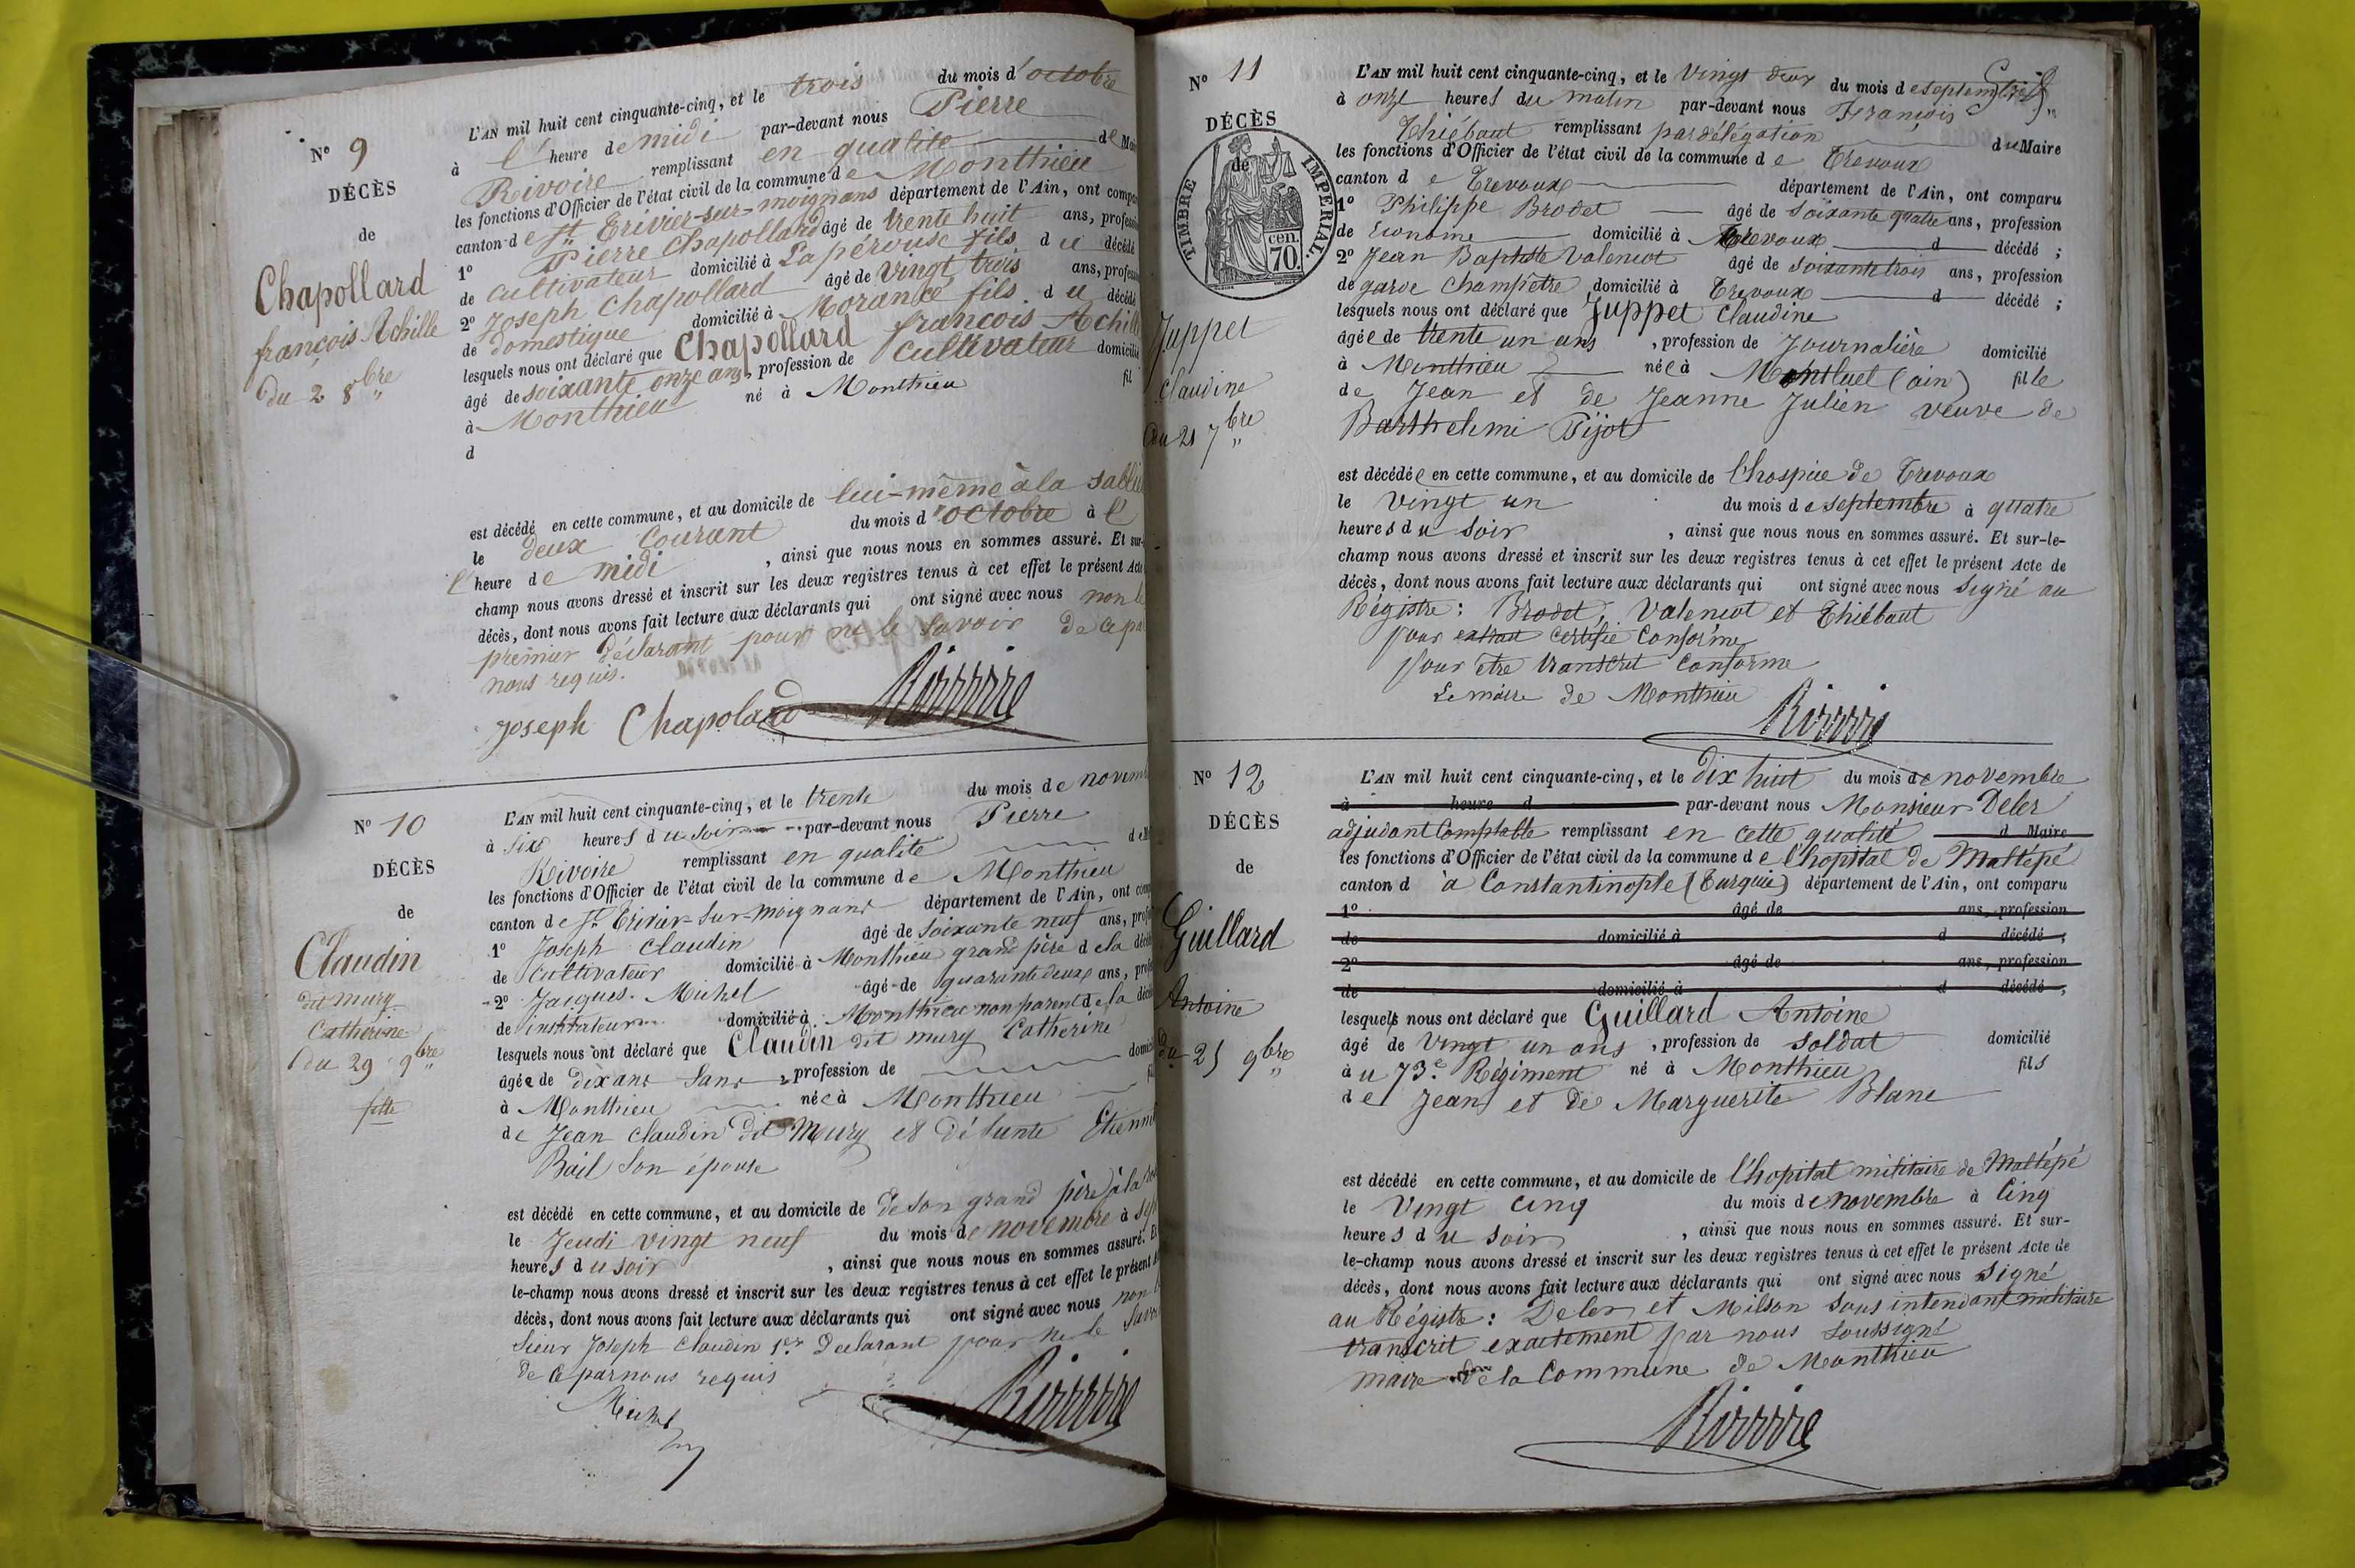 N° 9
DÉCÈS
de
Chapollard
françois Achille
du 2 8bre
L'AN mil huit cent cinquante-cinq, et le trois du mois d'octobre
à l' heure de midi par-devant nous Pierre
Rivoire remplissant en qualité de Mai
les fonctions d'Officier de l'état civil de la commune de Monthieu
canton de St Trivier-sur-moignans département de l'Ain, ont compa
1° Pierre Chapollard âgé de trente huit ans, profession
de cultivateur domicilié à Lapérouse fils du décédé
2° Joseph Chapollard âgé de vingt trois ans, profession
de domestique domicilié à Morancé fils du décédé
lesquels nous ont déclaré que Chapollard francois Achill
âgé de soixante onze ans, profession de cultivateur domicilié
à Monthieu né à Monthieu fil
d
est décédé en cette commune, et au domicile de lui-même à la
le deux courant du mois d'octobre à l'
l'heure de midi , ainsi que nous nous en sommes assuré. Et sur-
champ nous avons dressé et inscrit sur les deux registres tenus à cet effet le présent Acte
décès, dont nous avons fait lecture aux déclarants qui ont signé avec nous non le
premier déclarant pour ne le savoir de ce pa
nous requis.
Joseph Chapolard Rivoire
N° 10
DÉCÈS
de
Claudin
dit mury
Catherine
du 29 9bre
fille
L'AN mil huit cent cinquante-cinq, et le trente du mois de novem
à six heures du soir par-devant nous Pierre
Rivoire remplissant en qualité de M
les fonctions d'Officier de l'état civil de la commune de Monthieu
canton de St Trivier-sur-moignans département de l'Ain, ont comp
1° Joseph Claudin âgé de soixante neuf ans, prof
de cultivateur domicilié à Monthieu grand père de la décéd
2° Jacques Michel âgé de quarante deux ans, prof
de instituteur domicilié à Monthieu non parent de la décé
lesquels nous ont déclaré que Claudin dit mury Catherine
âgée de dix ans sans profession de domici
à Monthieu née à Monthieu fil
de Jean Claudin dit Mury et défunte Etienne
Bail son épouse
est décédé en cette commune, et au domicile de de son grand père à la
le Jeudi vingt neuf du mois de novembre à sep
heures du soir , ainsi que nous nous en sommes assuré. E
le-champ nous avons dressé et inscrit sur les deux registres tenus à cet effet le présent A
décès, dont nous avons fait lecture aux déclarants qui ont signé avec nous non
Sieur Joseph Claudin 1er declarant pour ne le savo
de ce par nous requis
Michel Rivoire
N° 11
DÉCÈS
de
TIMBRE IMPÉRIAL
70 cen.
Juppet
Claudine
du 21 7bre
L'AN mil huit cent cinquante-cinq, et le vingt deux du mois de septembre
à onze heures du matin par-devant nous François
Thiébaut remplissant par délégation du Maire
les fonctions d'Officier de l'état civil de la commune de Trevoux
canton de Trevoux département de l'Ain, ont comparu
1° Philippe Brodet âgé de soixante quatre ans, profession
de Econome domicilié à Trevoux d décédé ;
2° Jean Baptiste Valencot âgé de soixante trois ans, profession
de garde Champêtre domicilié à Trevoux d décédé ;
lesquels nous ont déclaré que Juppet Claudine
âgée de trente un ans , profession de Journalière domicilié
à Monthieu née à Montluel (ain) fille
de Jean et de Jeanne Julien veuve de
Barthelemi Pijot
est décédée en cette commune, et au domicile de l'hospice de Trevoux
le vingt un du mois de septembre à quatre
heures du soir , ainsi que nous nous en sommes assuré. Et sur-le-
champ nous avons dressé et inscrit sur les deux registres tenus à cet effet le présent Acte de
décès, dont nous avons fait lecture aux déclarants qui ont signé avec nous Signé au
Régistre : Brodet, Valencot et Thiébaut
pour extrait certifié Conforme
pour être transcrit Conforme
Le maire de Monthieu
Rivoire
N° 12
DÉCÈS
de
Guillard
Antoine
du 25 9bre
L'AN mil huit cent cinquante-cinq, et le dix huit du mois de novembre
à heure d par-devant nous Monsieur Deler
adjudant Comptable remplissant en cette qualité d Maire
les fonctions d'Officier de l'état civil de la commune de l'hopital de Maltépé
canton d à Constantinople (Turquie) département de l'Ain, ont comparu
1° âgé de ans, profession
de domicilié à d décédé ;
2° âgé de ans, profession
de domicilié à d décédé ;
lesquels nous ont déclaré que Guillard Antoine
âgé de vingt un ans , profession de soldat domicilié
au 73e Régiment né à Monthieu fils
de Jean et de Marguerite Blanc
est décédé en cette commune, et au domicile de l'hopital militaire de Maltépé
le vingt cinq du mois de novembre à Cinq
heures du soir , ainsi que nous nous en sommes assuré. Et sur-
le-champ nous avons dressé et inscrit sur les deux registres tenus à cet effet le présent Acte de
décès, dont nous avons fait lecture aux déclarants qui ont signé avec nous Signé
au Régistre : Deler et Milson sous intendant militaire
transcrit exactement par nous soussigné
maire de la Commune de Monthieu
Rivoire